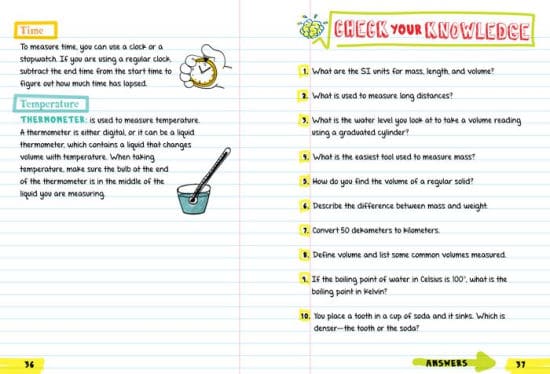 Time
To measure time, you can use a clock or a
stopwatch. If you are using a regular clock,
subtract the end time from the start time to
figure out how much time has lapsed.
Temperature
THERMOMETER: is used to measure temperature.
A thermometer is either digital, or it can be a liquid
thermometer, which contains a liquid that changes
volume with temperature. When taking
temperature, make sure the bulb at the end
of the thermometer is in the middle of the
liquid you are measuring.
36
CHECK YOUR KNOWLEDGE
1. What are the SI units for mass, length, and volume?
2. What is used to measure long distances?
3. What is the water level you look at to take a volume reading
using a graduated cylinder?
4. What is the easiest tool used to measure mass?
5. How do you find the volume of a regular solid?
6. Describe the difference between mass and weight.
7. Convert 50 dekameters to kilometers.
8. Define volume and list some common volumes measured.
9. If the boiling point of water in Celsius is 100°, what is the
boiling point in Kelvin?
10. You place a tooth in a cup of soda and it sinks. Which is
denser—the tooth or the soda?
ANSWERS
37